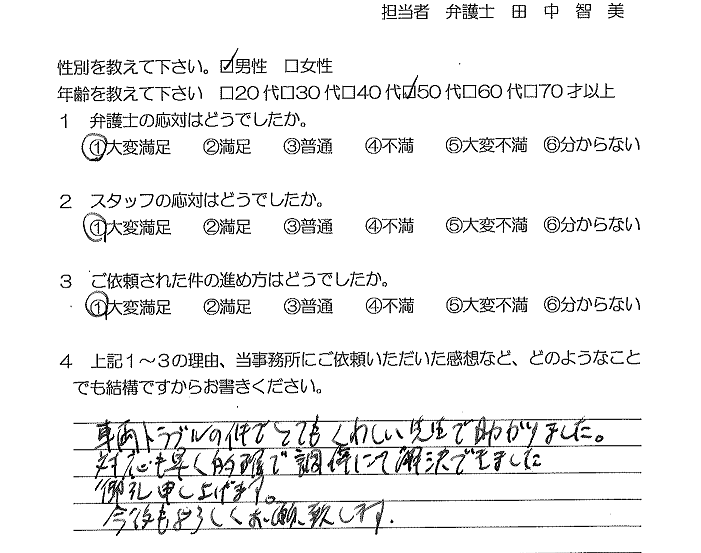 担当者 弁護士 田中智美
性別を教えて下さい。☑男性 □女性
年齢を教えて下さい □20代□30代□40代☑50代□60代□70才以上
1 弁護士の応対はどうでしたか。
①大変満足 ②満足 ③普通 ④不満 ⑤大変不満 ⑥分からない
2 スタッフの応対はどうでしたか。
①大変満足 ②満足 ③普通 ④不満 ⑤大変不満 ⑥分からない
3 ご依頼された件の進め方はどうでしたか。
①大変満足 ②満足 ③普通 ④不満 ⑤大変不満 ⑥分からない
4 上記1～3の理由、当事務所にご依頼いただいた感想など、どのようなこと
でも結構ですからお書きください。
車両トラブルの件でとてもくわしい先生で助かりました。
対応も早く的確で調停にて解決できました
御礼申し上げます。
今後もよろしくお願い致します.